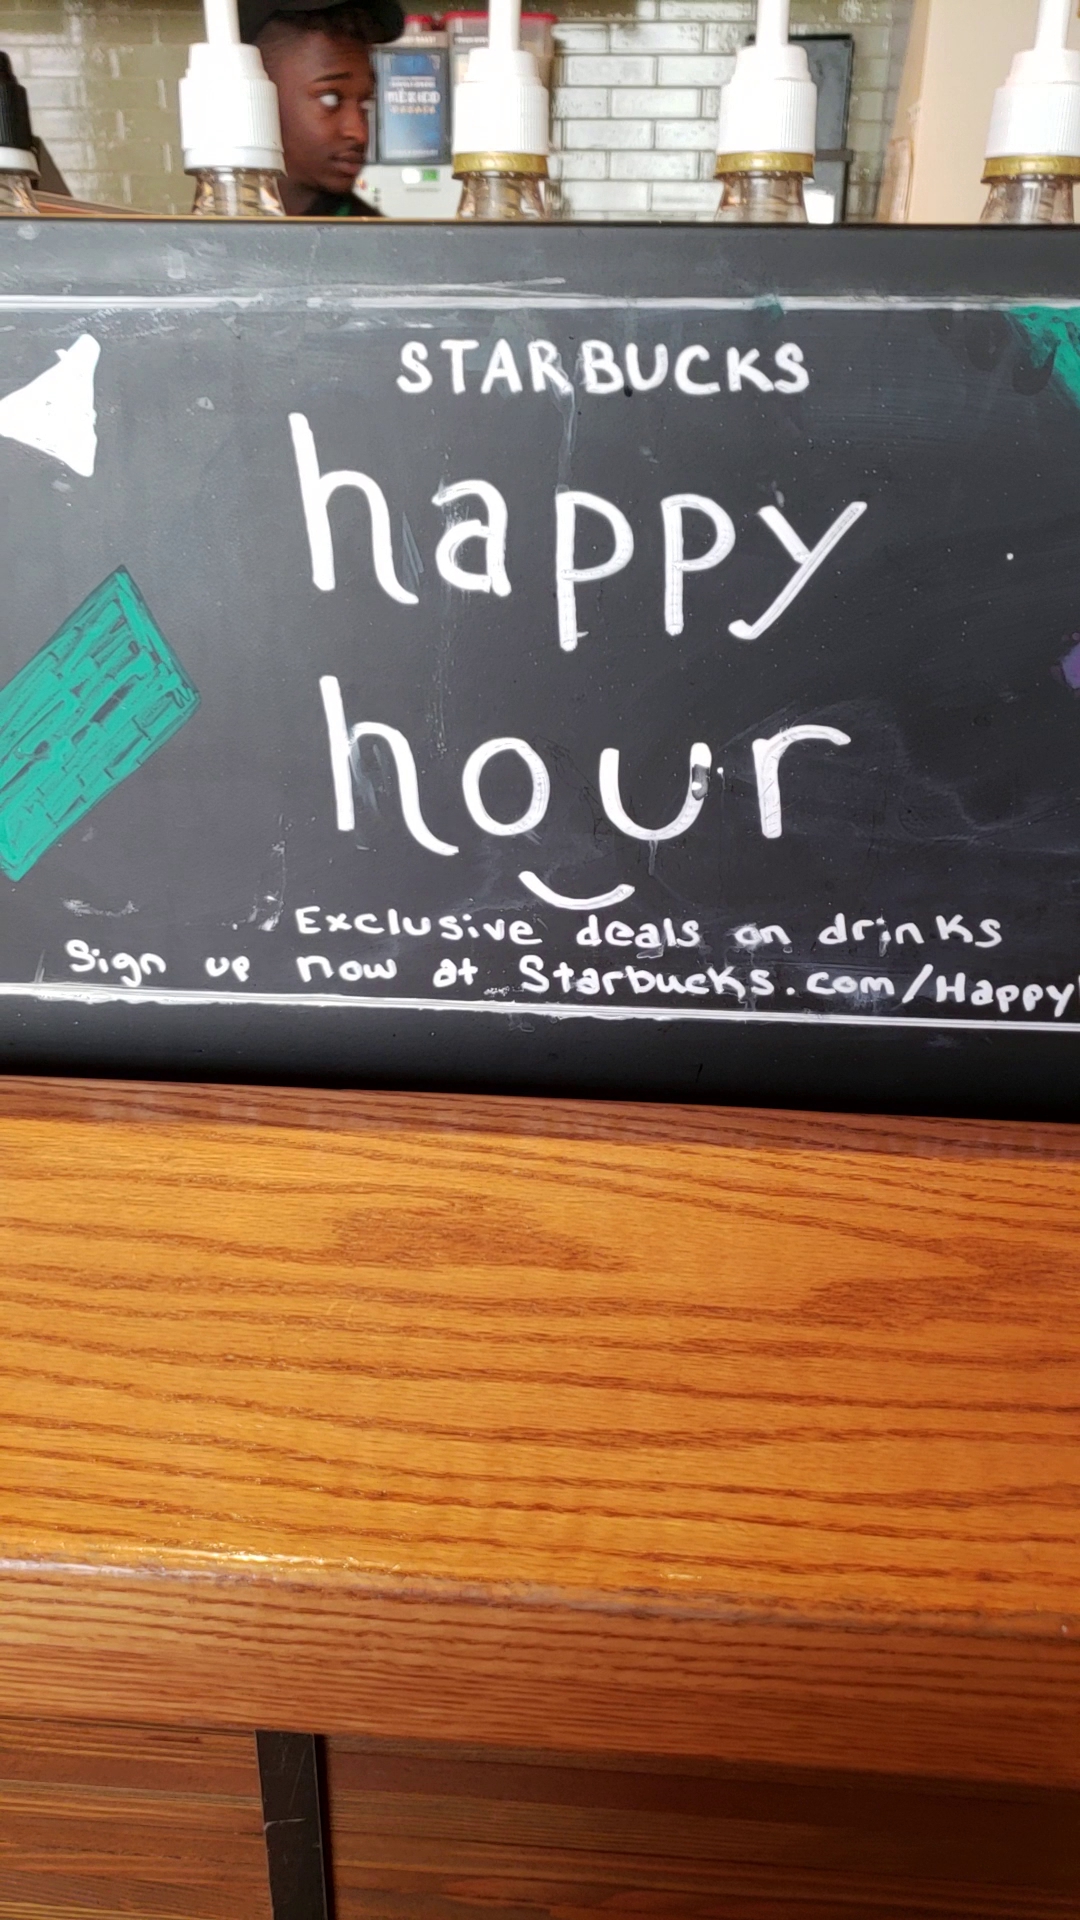 MÉXICO
STARBUCKS
happy
hour
Exclusive deals on drinks
Sign up now at Starbucks.com/Happy